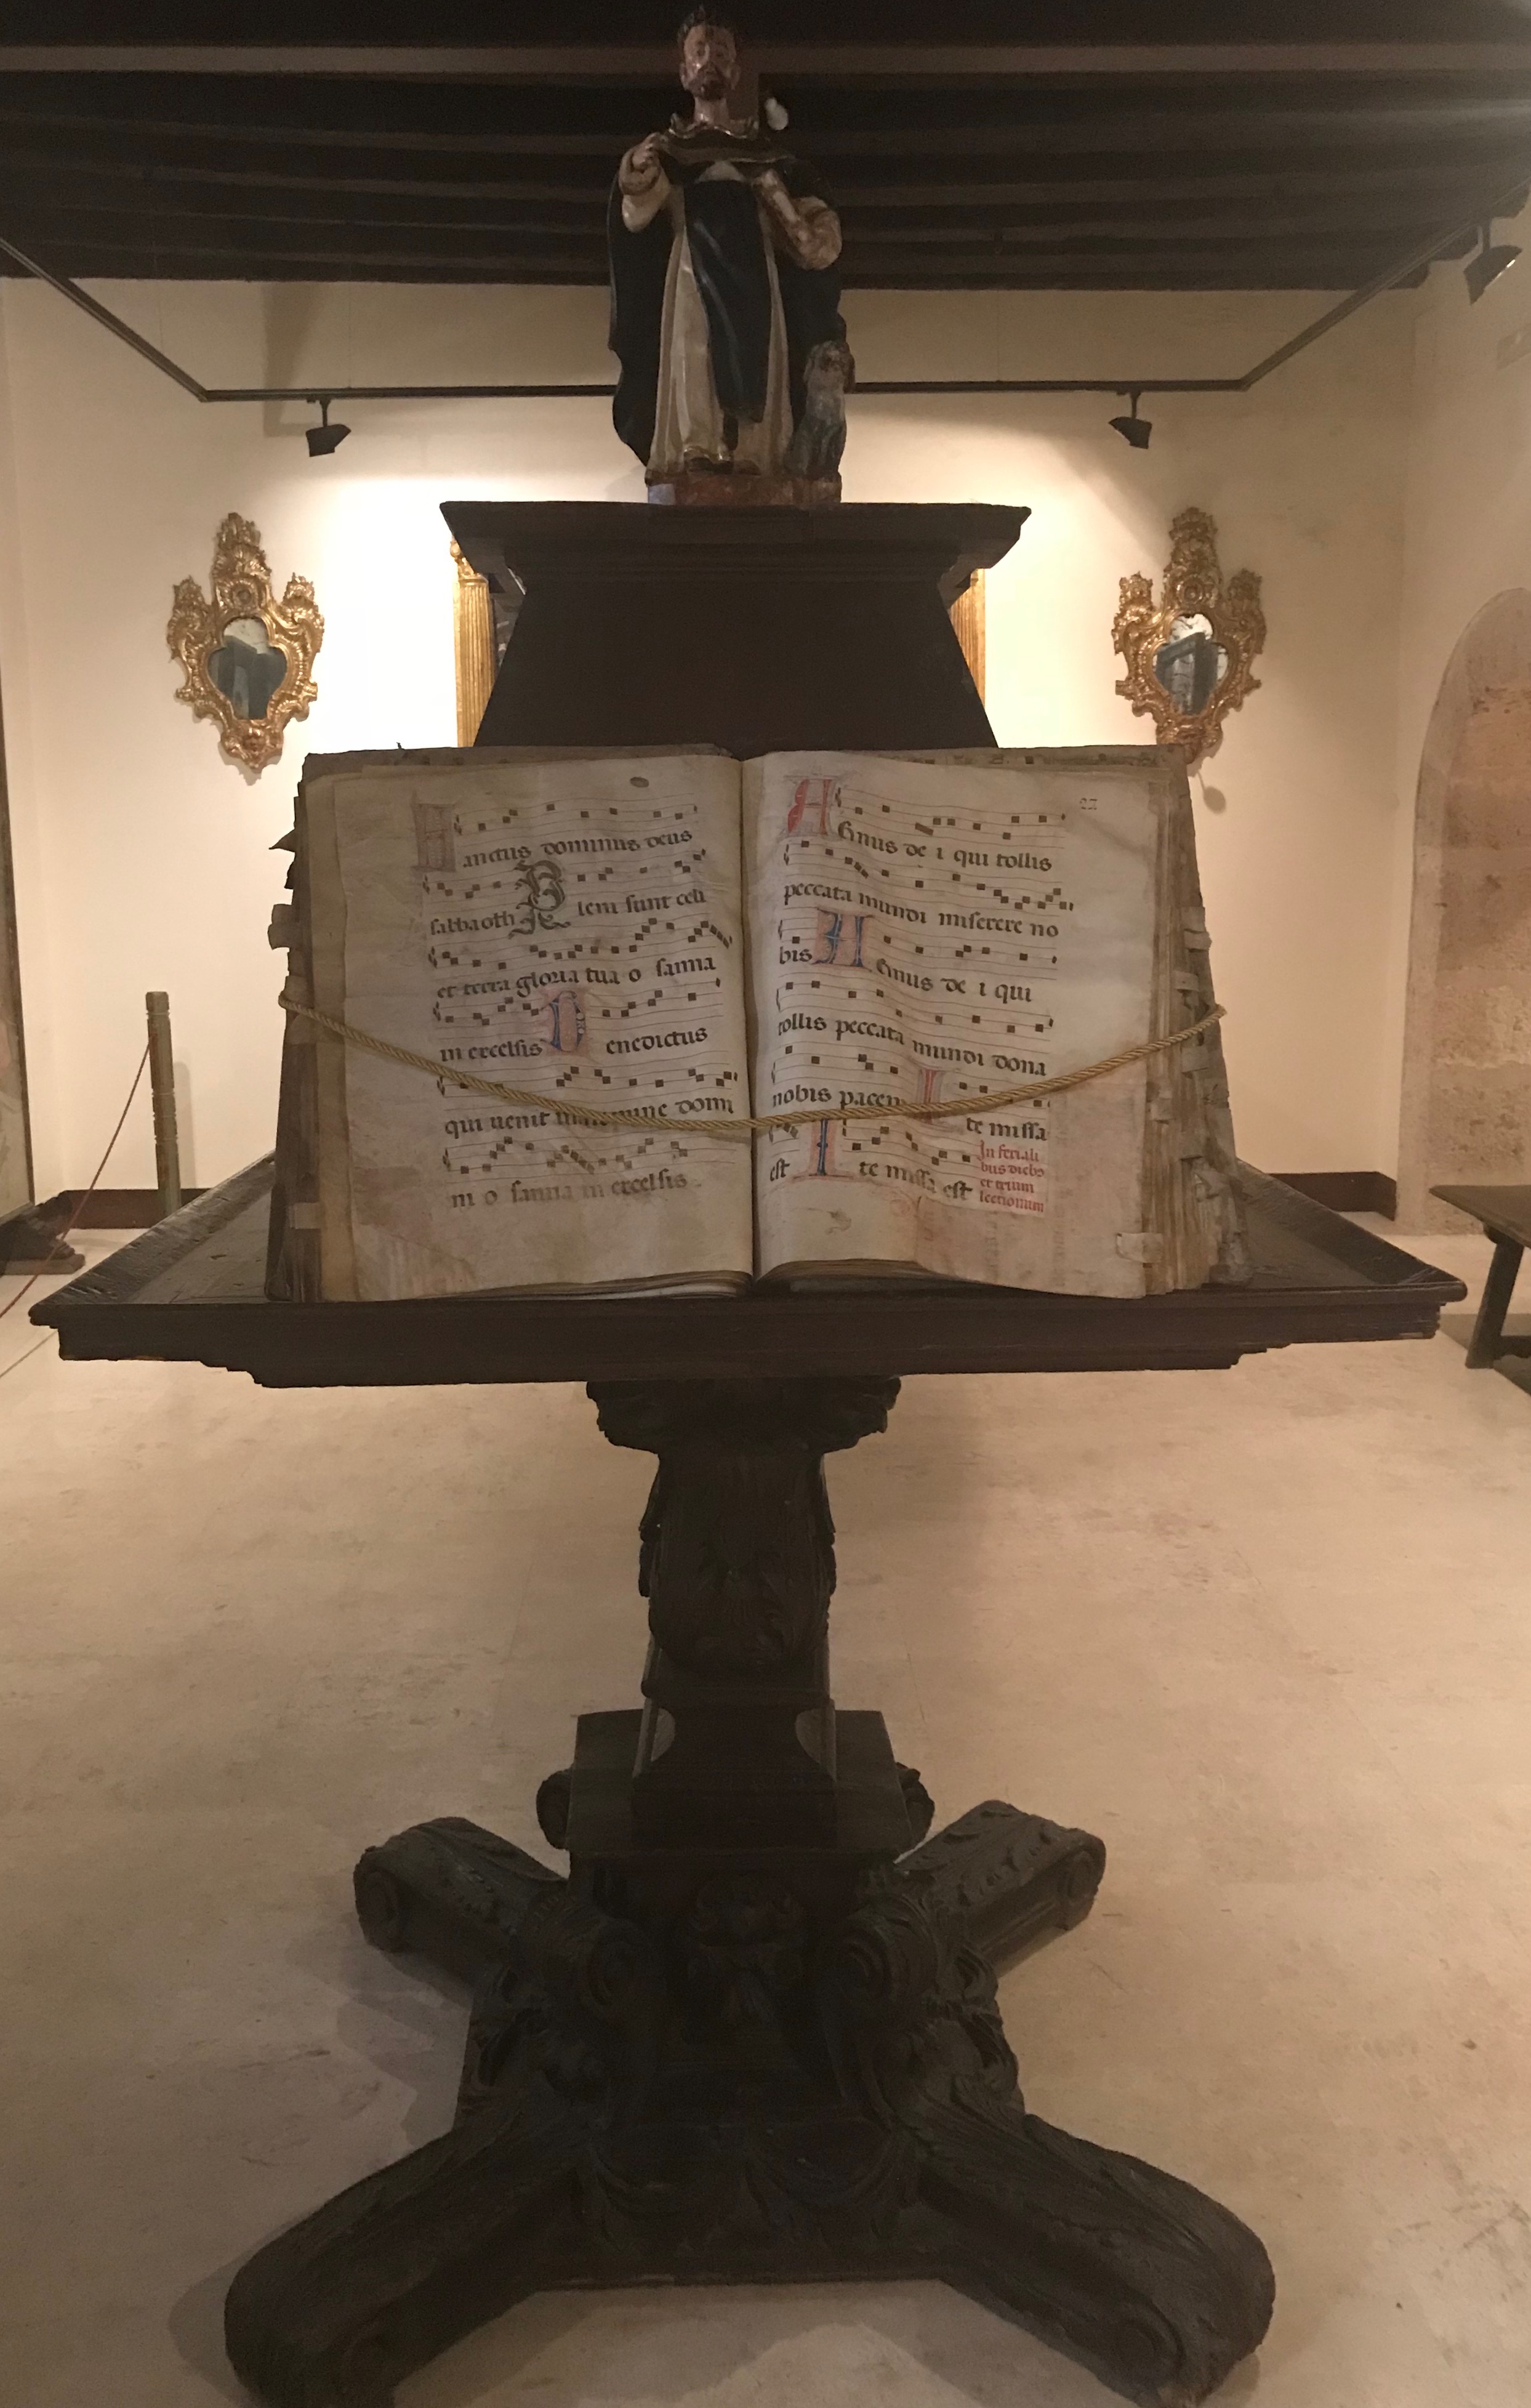 Sanctus dominus deus
sabbaoth Pleni sunt celi
et terra gloria tua o sanna
in excelsis Benedictus
qui uenit in nomine domi
ni o sanna in excelsis
22
Agnus de i qui tollis
peccata mundi miserere no
bis Agnus de i qui
tollis peccata mundi dona
nobis pacem Ite missa
est Ite missa est
In feriali
bus diebs
et trium
lectionum